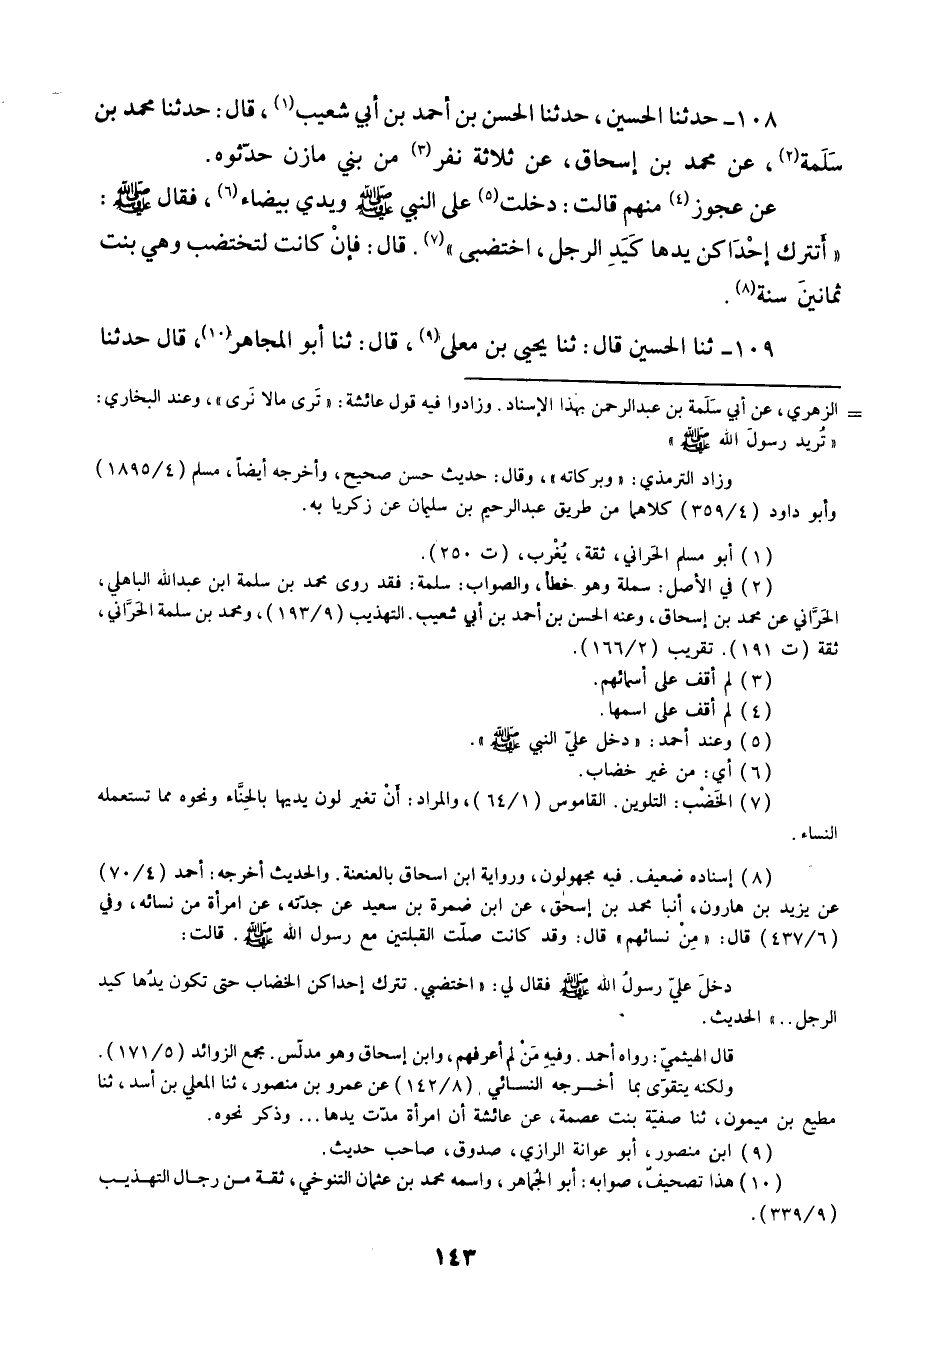 ١٠٨ـ حدثنا الحسين، حدثنا الحسن بن أحمد بن أبي شعيب(١)، قال: حدثنا محمد بن
سَلَمة(٢)، عن محمد بن إسحاق، عن ثلاثة نفر(٣) من بني مازن حدّثوه.
عن عجوز(٤) منهم قالت: دخلت(٥) على النبي ﷺ ويدي بيضاء(٦)، فقال ﷺ:
«أَتترك إحْدَاكن يدها كَيَدِ الرجل، اختضبى»(٧). قال: فإنْ كانت لتختضب وهي بنت
ثمانينَ سنة(٨).
١٠٩ـ ثنا الحسين قال: ثنا يحيى بن معلى(٩)، قال: ثنا أبو المجاهر(١٠)، قال حدثنا
= الزهري، عن أبي سَلَمة بن عبدالرحمن بهذا الإسناد. وزادوا فيه قول عائشة: «تَرى مالا نَرى»، وعند البخاري:
«تُريد رسولَ الله ﷺ»
وزاد الترمذي: «وبركاته»، وقال: حديث حسن صحيح، وأخرجه أيضاً، مسلم (١٨٩٥/٤)
وأبو داود (٣٥٩/٤) كلاهما من طريق عبدالرحيم بن سليمان عن زكريا به.
(١) أبو مسلم الحَراني، ثقة، يُغْرب، (ت ٢٥٠).
(٢) في الأصل: سملة وهو خطأ، والصواب: سلمة: فقد روى محمد بن سلمة ابن عبدالله الباهلي،
الحَرَّاني عن محمد بن إسحاق، وعنه الحسن بن أحمد بن أبي شعيب. التهذيب (١٩٣/٩)، ومحمد بن سلمة الحَرَّاني،
ثقة (ت ١٩١). تقريب (١٦٦/٢).
(٣) لم أقف على أسمائهم.
(٤) لم أقف على اسمها.
(٥) وعند أحمد: «دخل عليّ النبي ﷺ».
(٦) أي: من غير خضاب.
(٧) الخَضْب: التلوين. القاموس (٦٤/١)، والمراد: أنْ تغير لون يديها بالحِنَّاء ونحوه مما تستعمله
النساء.
(٨) إسناده ضعيف. فيه مجهولون، ورواية ابن اسحاق بالعنعنة. والحديث أخرجه: أحمد (٧٠/٤)
عن يزيد بن هارون، أنبا محمد بن إسحٰق، عن ابن ضمرة بن سعيد عن جدّته، عن امرأة من نسائه، وفي
(٤٣٧/٦) قال: «مِنْ نسائهم» قال: وقد كانت صلّت القبلتين مع رسول الله ﷺ. قالت:
دخلَ عليّ رسولُ الله ﷺ فقال لي: «اختضبي. تترك إحداكن الخضاب حتى تكون يدُها كيد
الرجل..» الحديث.
قال الهيثميّ: رواه أحمد. وفيهِ مَنْ لم أعرفهم، وابن إسحاق وهو مدلّس. مجمع الزوائد (١٧١/٥).
ولكنه يتقوّى بما أخرجه النسائي (١٤٢/٨) عن عمرو بن منصور، ثنا المعلي بن أسد، ثنا
مطيع بن ميمون، ثنا صفيّة بنت عصمة، عن عائشة أن امرأة مدّت يدها... وذكر نحوه.
(٩) ابن منصور، أبو عوانة الرازي، صدوق، صاحب حديث.
(١٠) هذا تصحيفّ، صوابه: أبو الجُماهر، واسمه محمد بن عثمان التنوخي، ثقة من رجال التهذيب
(٣٣٩/٩).
١٤٣